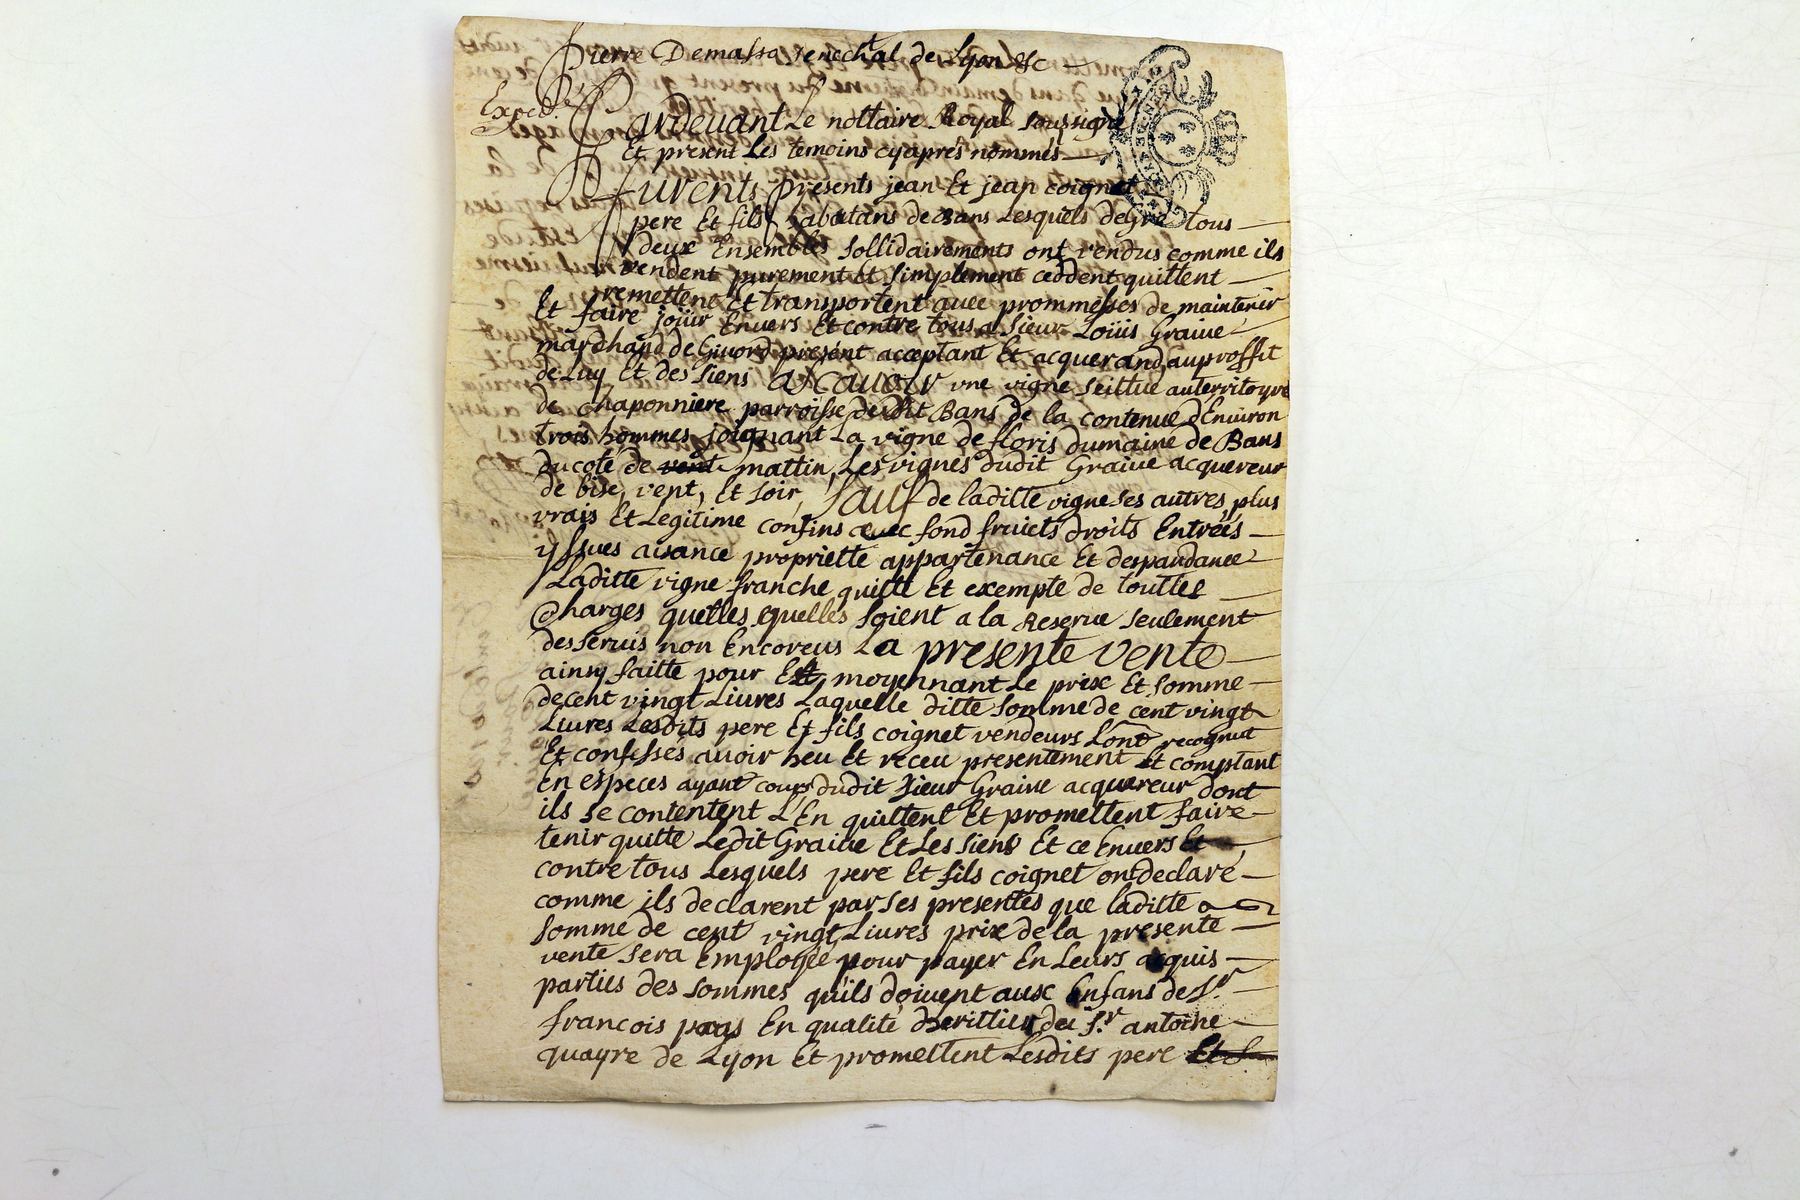 Pierre Demassa senechal de Lyon &c
Exped.
Pardevant Le nottaire Royal soussigné
Et present Les temoins cyapres nommés
furents presents jean Et jean coignet
pere Et fils habitans de Bans Lesquels de Gré tous
deux Ensembles sollidairements ont vendus comme ils
vendent purement Et simplement ceddent quittent
remettent Et transportent avec prommesses de maintenir
Et faire joüir Envers Et contre tous a sieur Loüis Graive
marchand de Givord present acceptant Et acquerand au proffit
de Luy Et des siens ascavoir une vigne seittue au territoyre
de chaponniere parroisse dudit Bans de la contenue d'Environ
trois hommes joignant La vigne de floris dumaine de Bans
du coté de vent mattin, Les vignes dudit Graive acquereur
de bise, vent, Et soir, sauf de laditte vigne ses autres plus
vrais Et Legitime confins avec fond fruicts droits Entrées
yssues aisance propriette appartenance Et despandance
Laditte vigne franche quitte Et exempte de touttes
Charges quelles quelles soient a la Reserve seulement
des servis non Encoreus La presente vente
ainsy faitte pour Et moyennant Le prix Et somme
de cent vingt Livres Laquelle ditte somme de cent vingt
Livres Lesdits pere Et fils coignet vendeurs L'ont recognut
Et confessés avoir heu Et receu presentement Et comptant
En especes ayant cours dudit sieur Graive acquereur dont
ils se contentent L'En quittent Et promettent faire
tenir quitte Ledit Graive Et Les siens Et ce Envers Et
contre tous Lesquels pere Et fils coignet ont declaré
comme ils declarent par ses presentes que laditte
somme de cent vingt Livres prix de la presente
vente sera Employée pour payer En Leurs acquis
parties des sommes qu'ils doivent aux Enfans de Sr
francois pays En qualité dherittier du Sr antoine
quayre de Lyon Et promettent Lesdits pere Et f